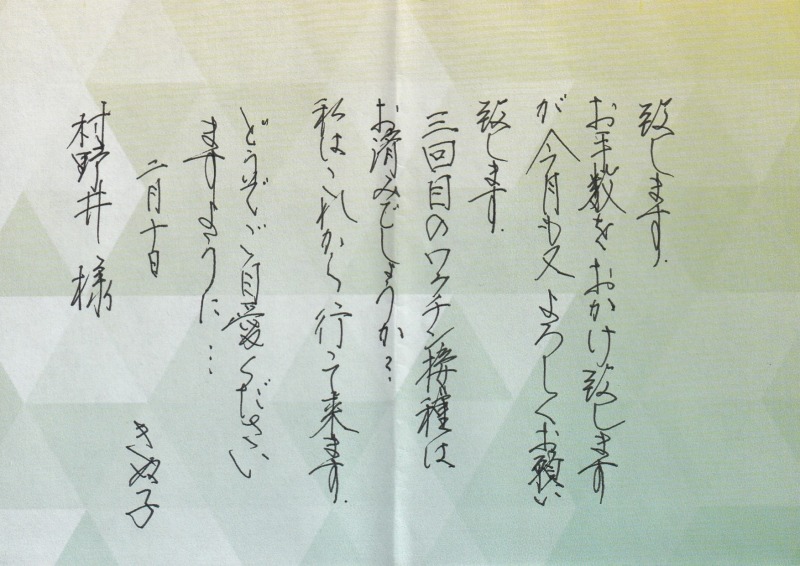 致します。
お手数をおかけ致します
が今月も又よろしくお願い
致します。
三回目のワクチン接種は
お済みでしょうか?
私はこれから行って来ます。
どうぞご自愛ください
ますように…
二月十日
きぬ子
村野井様